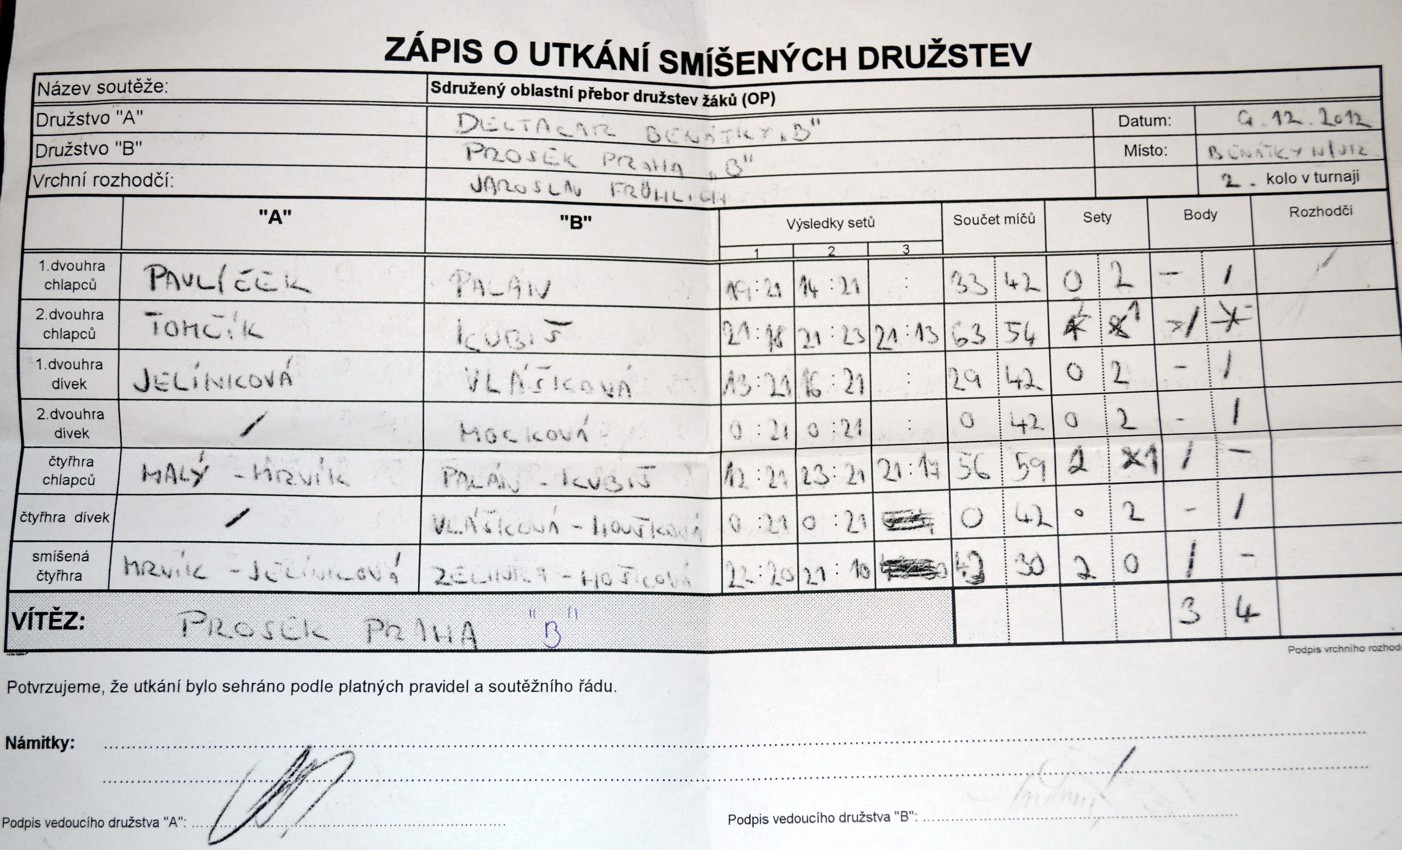 ZÁPIS O UTKÁNÍ SMÍŠENÝCH DRUŽSTEV
Název soutěže: Sdružený oblastní přebor družstev žáků (OP)
Družstvo "A" DELTACAR BENÁTKY „B" Datum: 9.12.2012
Družstvo "B" PROSEK PRAHA „B" Místo: BENÁTKY N/JIZ.
Vrchní rozhodčí: JAROSLAV FRÖHLICH 2. kolo v turnaji
"A" "B" Výsledky setů Součet míčů Sety Body Rozhodčí
1 2 3
1.dvouhra chlapců PAVLÍČEK PALÁN 19:21 14:21 : 33 42 0 2 - 1
2.dvouhra chlapců TOMČÍK KUBIŠ 21:18 21:23 21:13 63 54 2 1 1 -
1.dvouhra dívek JELÍNKOVÁ VLÁŠKOVÁ 13:21 16:21 : 29 42 0 2 - 1
2.dvouhra dívek / MOCKOVÁ 0:21 0:21 : 0 42 0 2 - 1
čtyřhra chlapců MALÝ - MRVÍK PALÁN - KUBIŠ 12:21 23:21 21:17 56 59 2 1 1 -
čtyřhra dívek / VLÁŠKOVÁ - 0:21 0:21 0 42 0 2 - 1
smíšená čtyřhra MRVÍK - JELÍNKOVÁ ZELINKA - 22:20 21:10 30 2 0 1 -
VÍTĚZ: PROSEK PRAHA "B" 3 4
Podpis vrchního rozhod
Potvrzujeme, že utkání bylo sehráno podle platných pravidel a soutěžního řádu.
Námitky:
Podpis vedoucího družstva "A": Podpis vedoucího družstva "B":